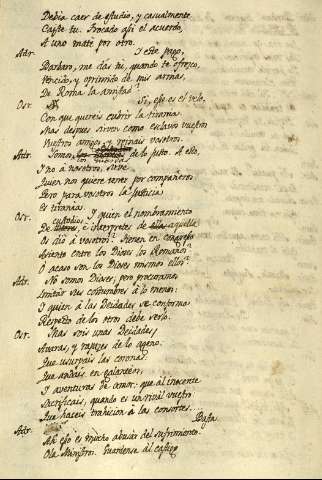 Debia caer de estudio, y casualmente
Caiste tu. Trocado asi el acuerdo,
A uno maté por otro.
Adr. I este pago,
Barbaro, me dás tu, quando te ofrezco,
Vencido, y oprimido de mis armas,
De Roma la amistad?
Osr. Si, ese es el velo,
Con que quereis cubrir la tirania.
Mas despues sirven como esclavos vuestros
Vuestros amigos, y reinais vosotros.
Adr. Somos de lo justo. A esto,
I no á nosotros, sirve
Quien nos quiere tener por compañeros
Pero para vosotros la justicia
Es tirania
Osr. I quien el nombramiento
De custodios, é interpretes de aquella
Os dió á vosotros? tienen en congreso
Asiento entre los Dioses los Romanos?
O acaso son los Dioses mismos ellos?
Adr. No somos Dioses; pero procuramos
Imitar sus costumbres á lo menos:
I quien á las Deidades se conforma
Respeto de los otros debe verlo.
Osr. Mas sois unas Deidades,
Avaras, y rapaces de lo ageno.
Que usurpais las coronas:
Que andais en galanteos,
I aventuras de amor: que al inocente
Sacrificais, quando es un rival vuestro:
Que haceis trahicion á las consortes.
Adr. Basta.
Ah eso es mucho abusar del sufrimiento.
Ola Ministros. Guardense al